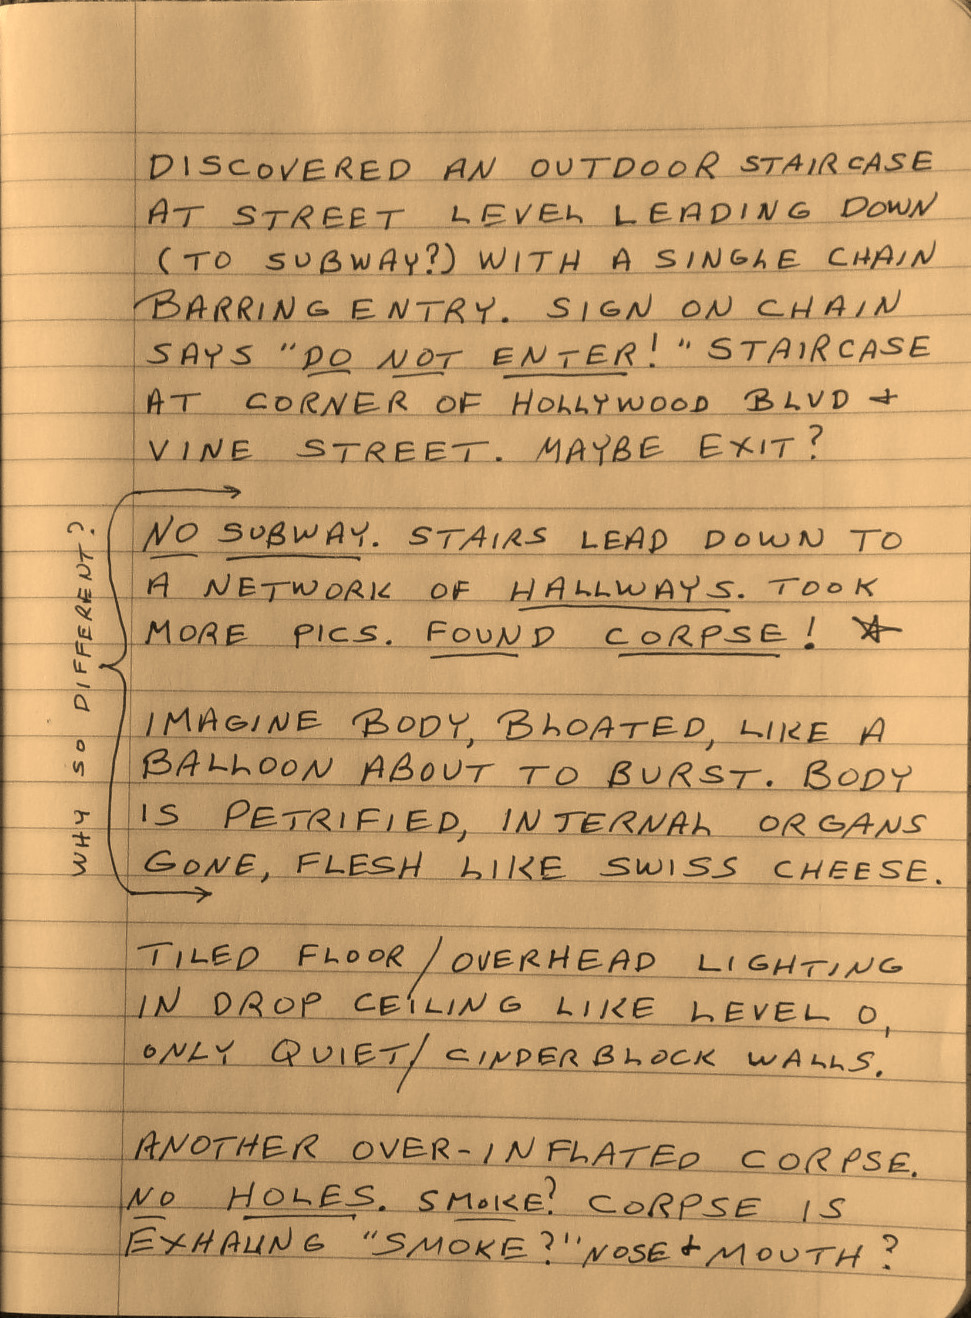 DISCOVERED AN OUTDOOR STAIRCASE
AT STREET LEVEL LEADING DOWN
(TO SUBWAY?) WITH A SINGLE CHAIN
BARRING ENTRY. SIGN ON CHAIN
SAYS "DO NOT ENTER!" STAIRCASE
AT CORNER OF HOLLYWOOD BLVD +
VINE STREET. MAYBE EXIT?
WHY SO DIFFERENT?
NO SUBWAY. STAIRS LEAD DOWN TO
A NETWORK OF HALLWAYS. TOOK
MORE PICS. FOUND CORPSE! ☆
IMAGINE BODY, BLOATED, LIKE A
BALLOON ABOUT TO BURST. BODY
IS PETRIFIED, INTERNAL ORGANS
GONE, FLESH LIKE SWISS CHEESE.
TILED FLOOR/OVERHEAD LIGHTING
IN DROP CEILING LIKE LEVEL 0,
ONLY QUIET/CINDERBLOCK WALLS.
ANOTHER OVER-INFLATED CORPSE.
NO HOLES. SMOKE? CORPSE IS
EXHALING "SMOKE?" NOSE + MOUTH?